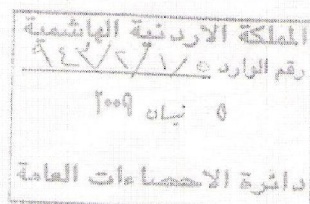 المملكة الاردنية الهاشمية
رقم الوارد
٥ نيسان ٢٠٠٩
دائرة الاحصاءات العامة